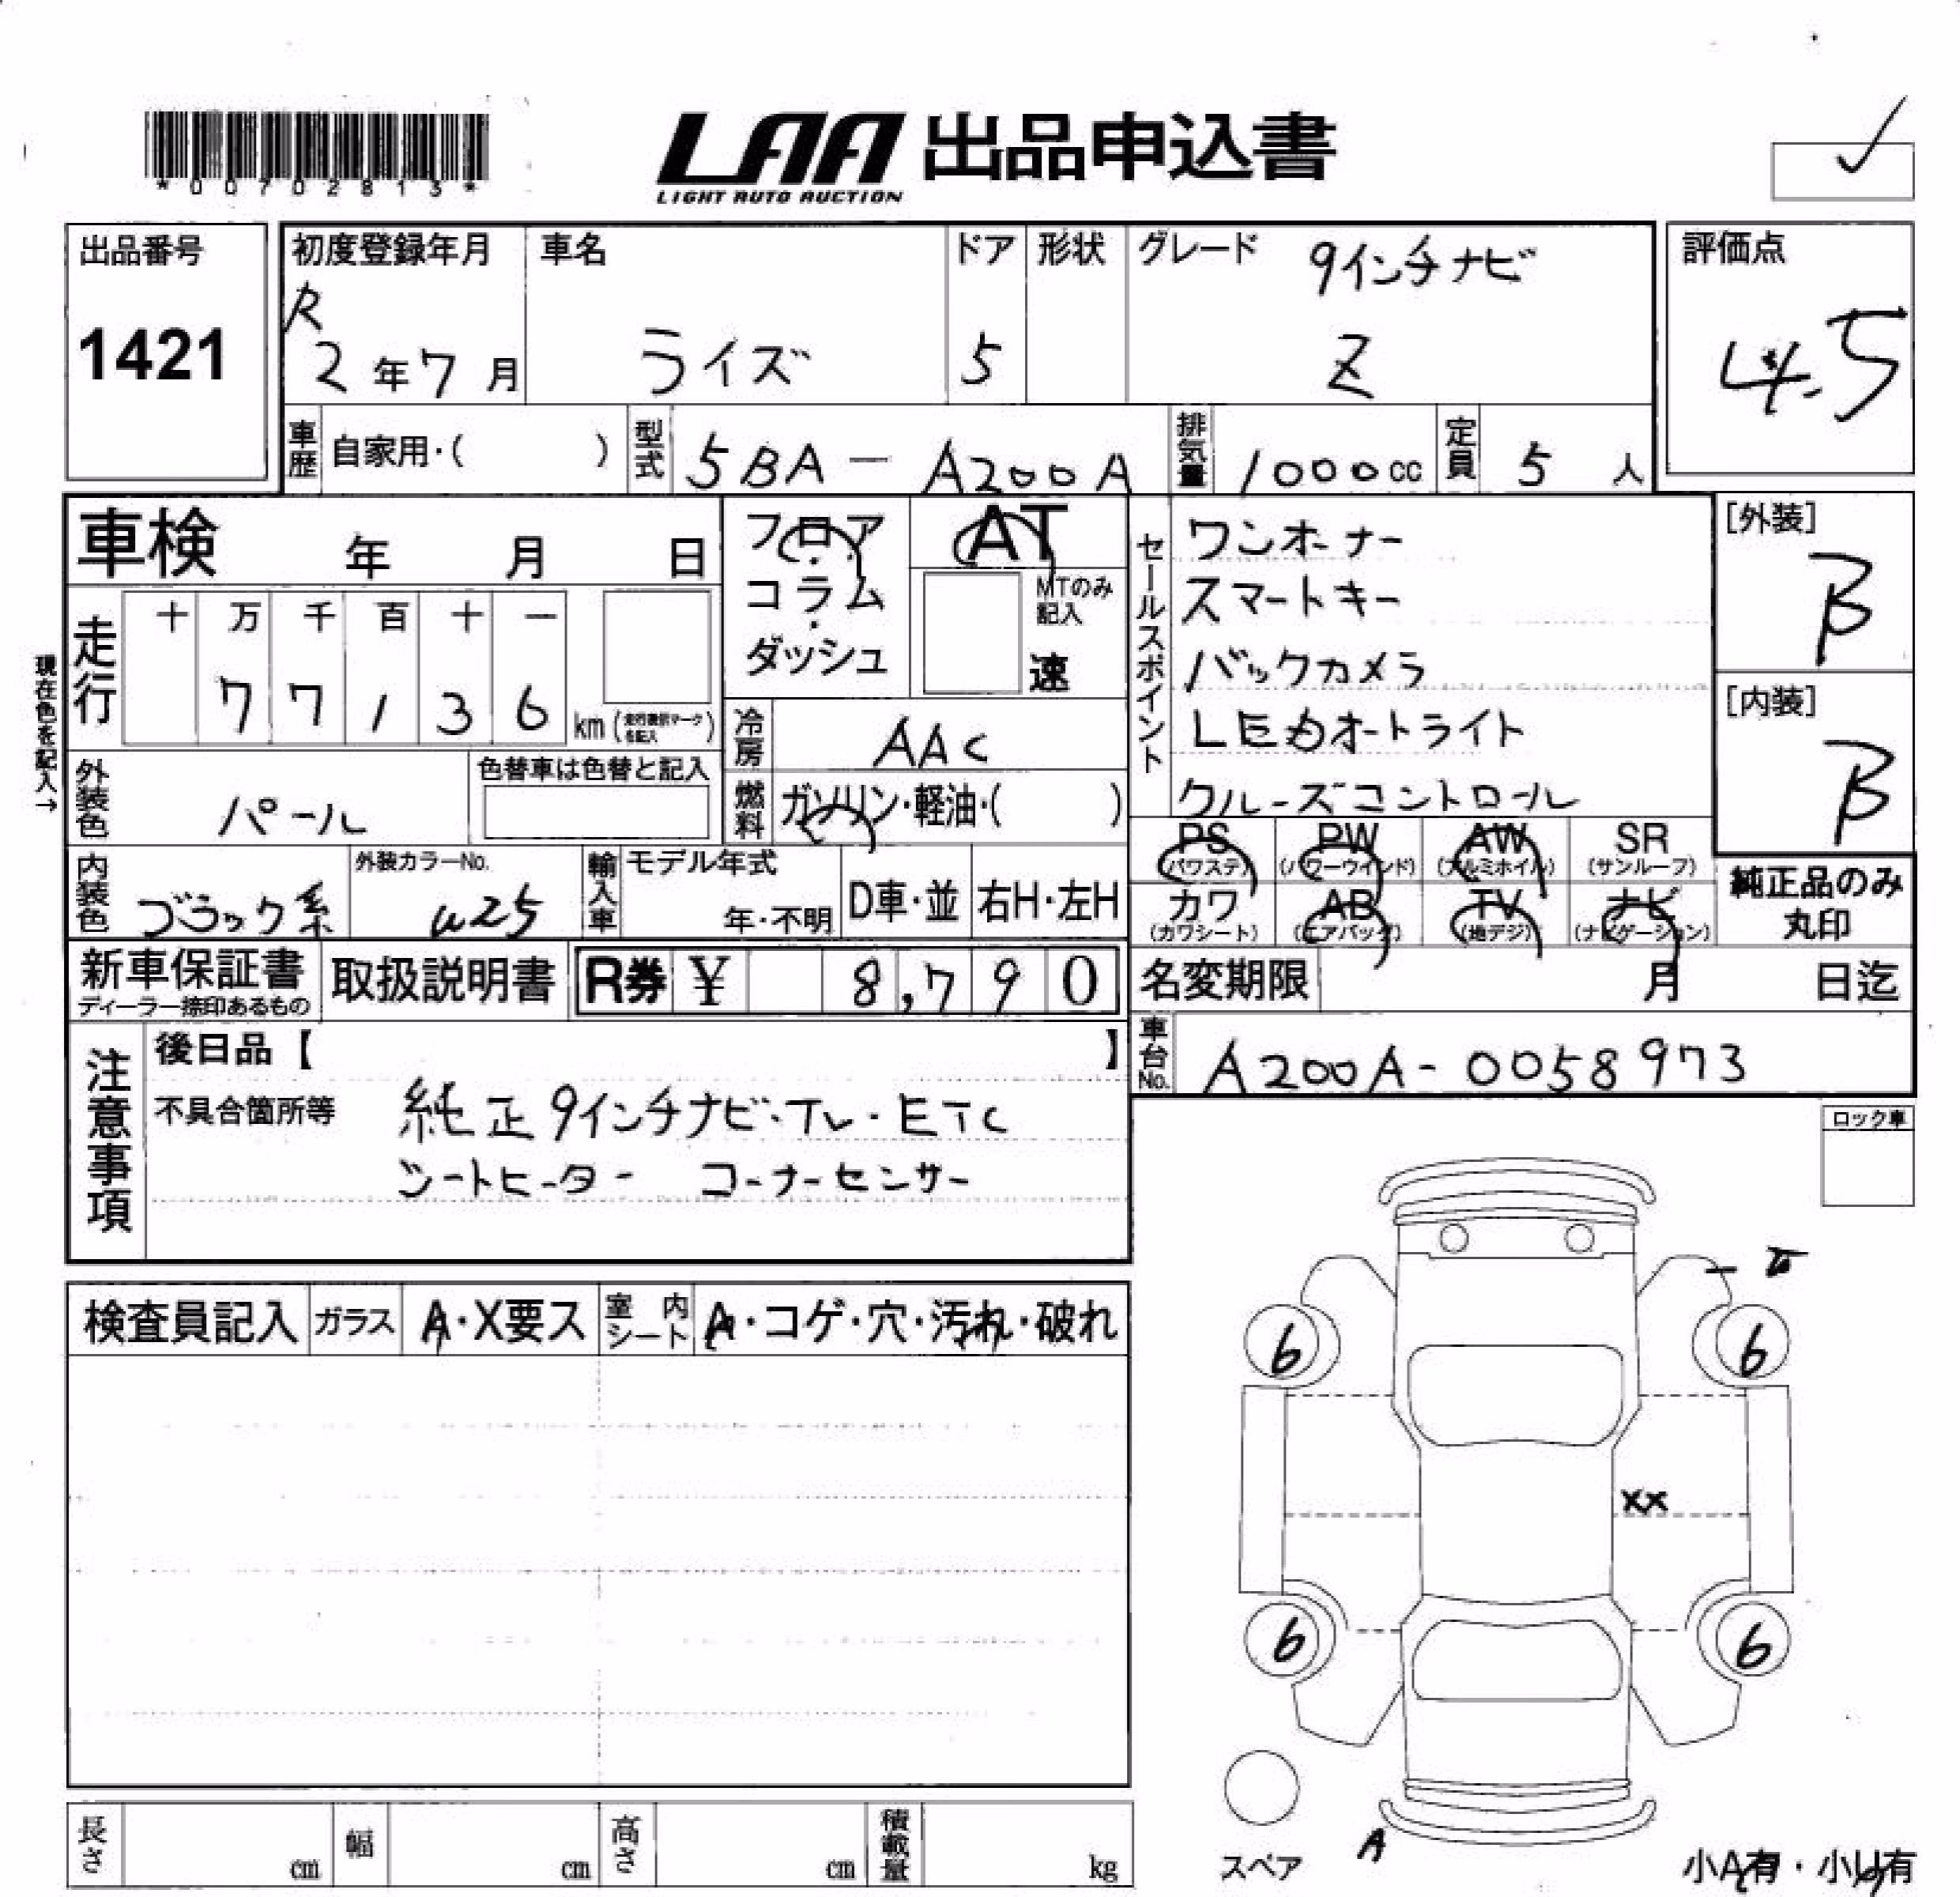 *00702813*
LAA 出品申込書
LIGHT AUTO AUCTION
出品番号
1421
初度登録年月
R
2年7月
車名
ライズ
ドア
5
形状
グレード 9インチナビ
Z
評価点
4.5
車歴 自家用・( )
型式 5BA-A200A
排気量 1000cc
定員 5人
車検 年 月 日
フロア・コラム・ダッシュ
AT
MTのみ記入
速
セールスポイント
ワンオーナー
スマートキー
バックカメラ
LEDオートライト
クルーズコントロール
[外装]
B
[内装]
B
現在色を記入→
走行 十 万 千 百 十 一
77136 km
冷房 AAC
外装色 パール
色替車は色替と記入
燃料 ガソリン・軽油・( )
内装色 ブラック系
外装カラーNo.
W25
輸入車 モデル年式
年・不明
D車・並
右H・左H
PS (パワステ) PW (パワーウインド) AW (アルミホイル) SR (サンルーフ)
カワ (カワシート) AB (エアバッグ) TV (地デジ) ナビ (ナビゲーション)
純正品のみ丸印
新車保証書
ディーラー捺印あるもの
取扱説明書
R券 ¥ 8,790
名変期限 月 日迄
車台No. A200A-0058973
注意事項
後日品【 】
不具合箇所等 純正9インチナビ・TV・ETC
シートヒーター コーナーセンサー
ロック車
検査員記入 ガラス A・X要ス 室内シート A・コゲ・穴・汚れ・破れ
6 6
XX
6 6
スペア
A
小A有・小U有
長さ cm 幅 cm 高さ cm 積載量 kg